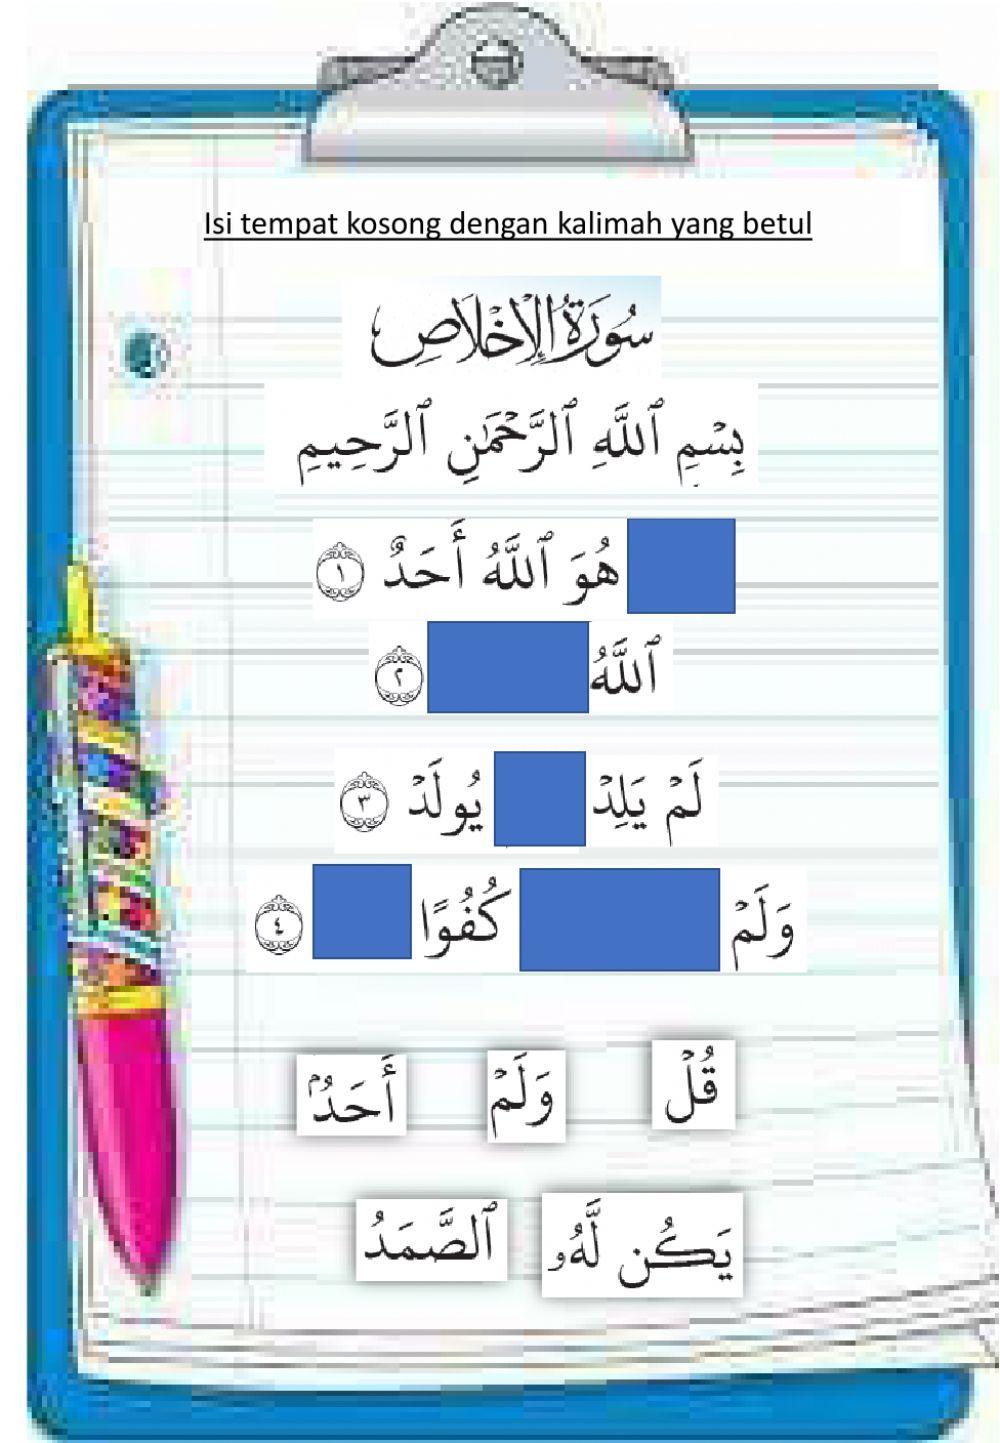 Isi tempat kosong dengan kalimah yang betul
سُورَةُ الْإِخْلَاصِ
بِسْمِ ٱللَّهِ ٱلرَّحْمَٰنِ ٱلرَّحِيمِ
هُوَ ٱللَّهُ أَحَدٌ ١
ٱللَّهُ ٢
لَمْ يَلِدْ يُولَدْ ٣
وَلَمْ كُفُوًا ٤
قُلْ وَلَمْ أَحَدُۢ
يَكُن لَّهُۥ ٱلصَّمَدُ